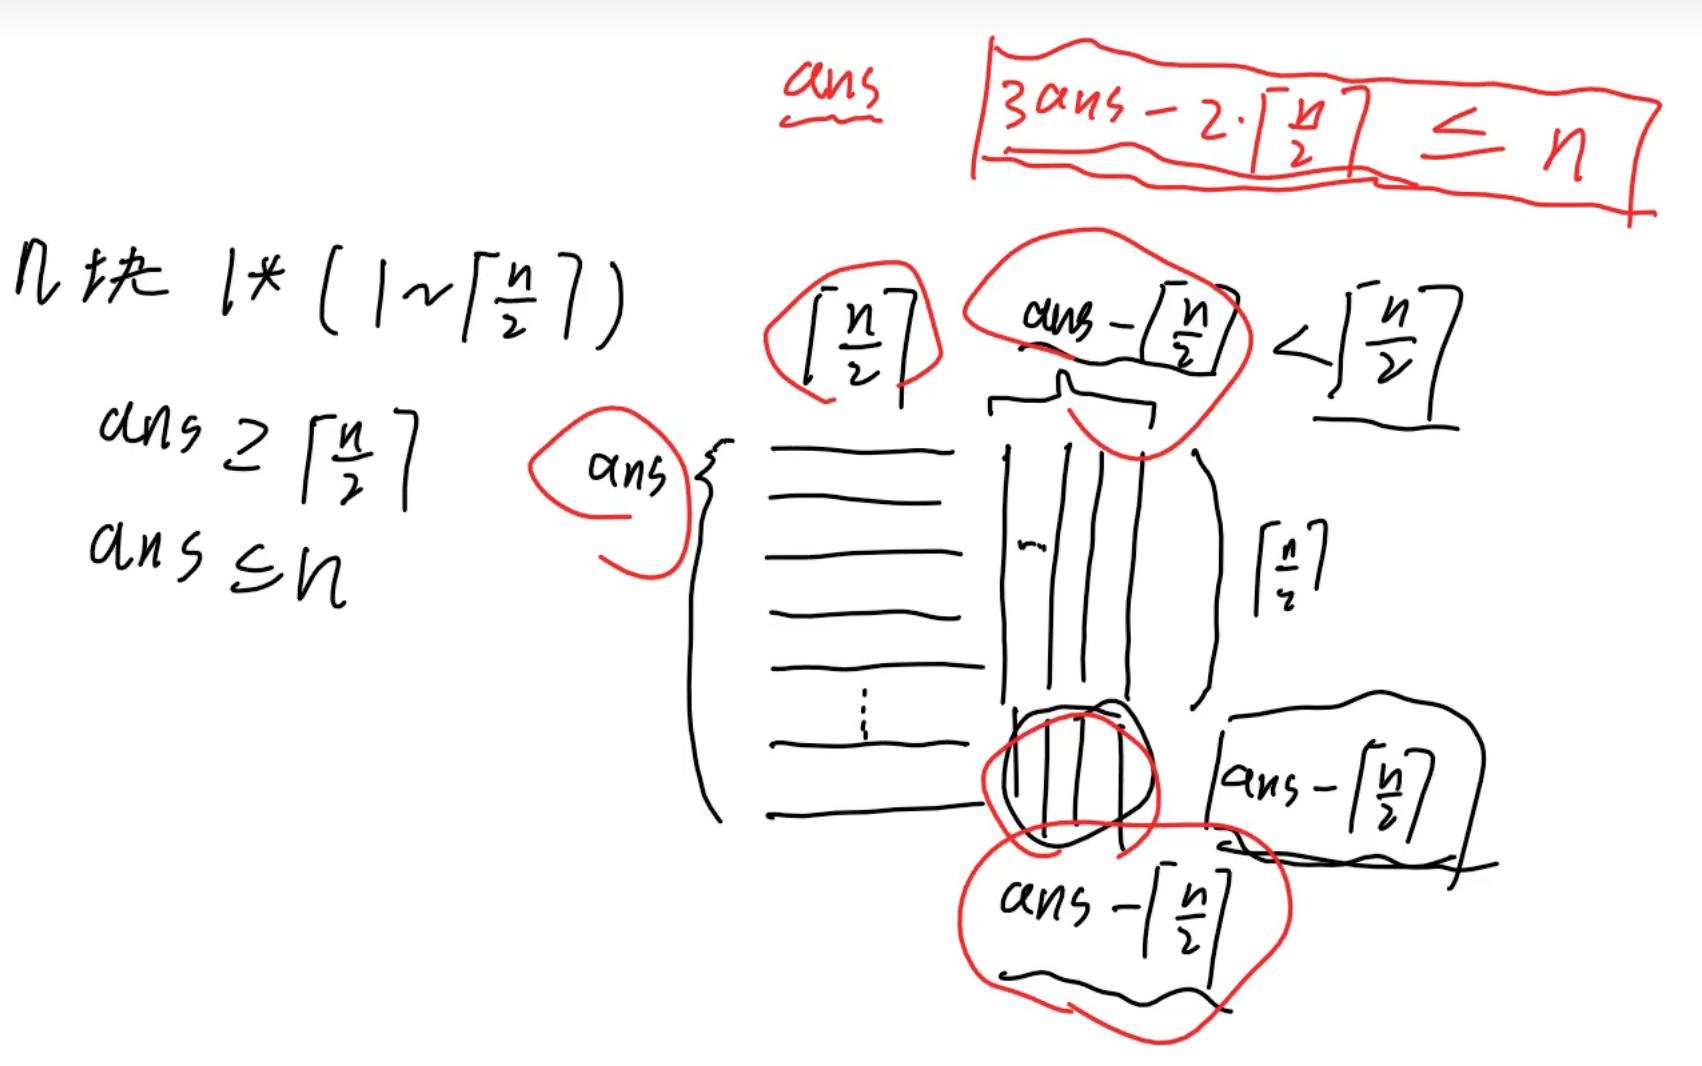 ans
3ans - 2·⌈n/2⌉ ≤ n
n块 1*(1~⌈n/2⌉)
ans ≥ ⌈n/2⌉
ans ≤ n
⌈n/2⌉
ans - ⌈n/2⌉ < ⌈n/2⌉
ans
⌈n/2⌉
ans - ⌈n/2⌉
ans - ⌈n/2⌉